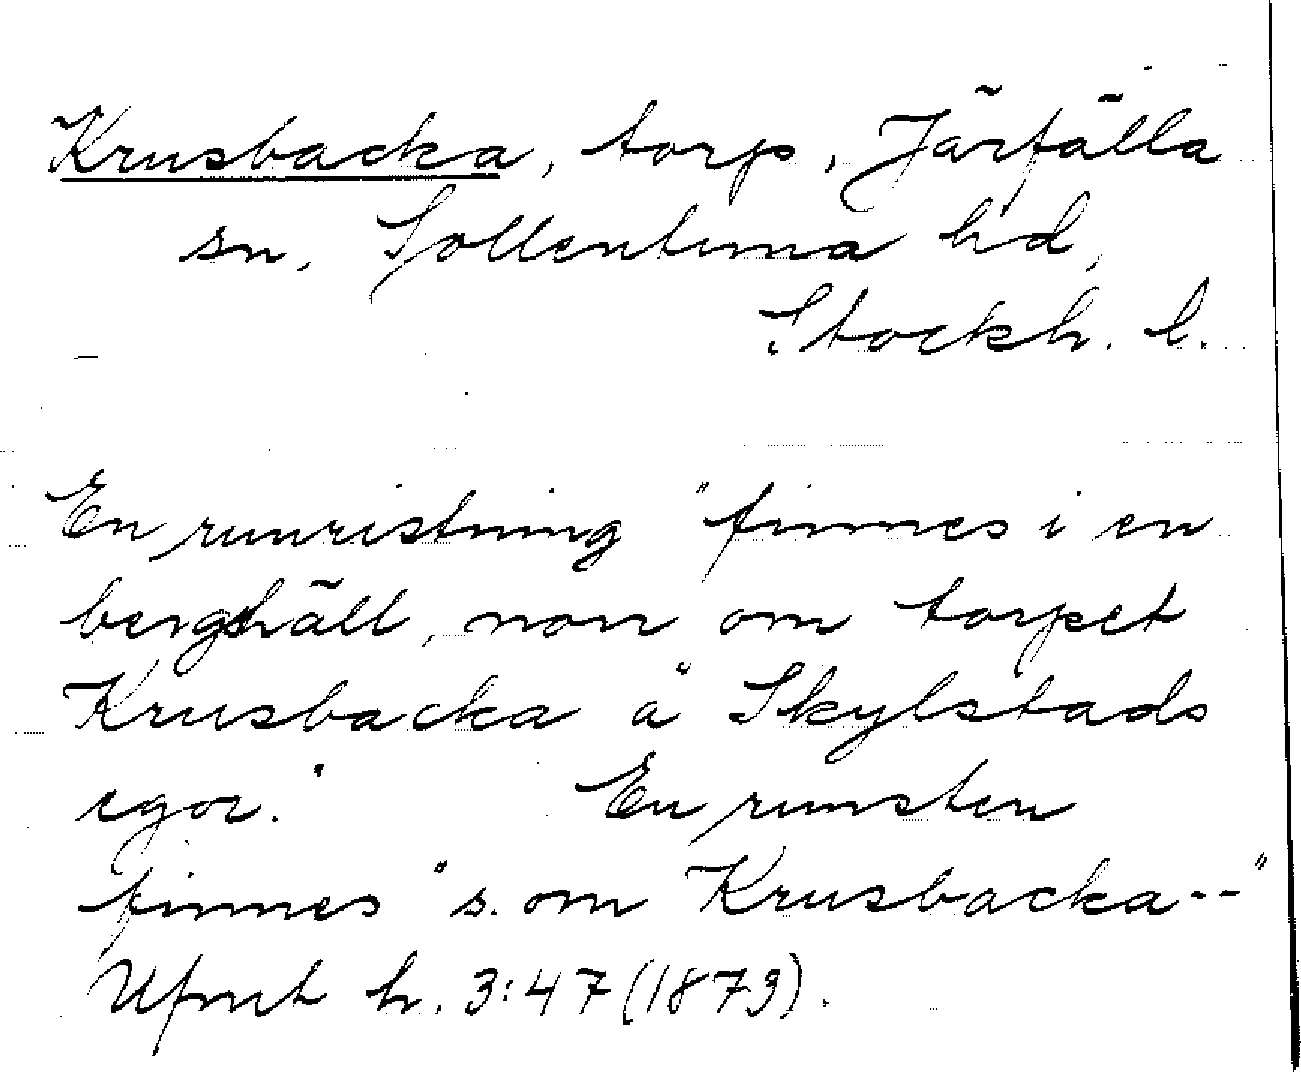 Krusbacka, torp, Järfälla
sn, Sollentuna hd,
Stockh. l.
En runristning "finnes i en
berghäll, norr om torpet
Krusbacka å Skylstads
egor." En runsten
finnes "s. om Krusbacka--"
Ufmt h. 3:47 (1873).